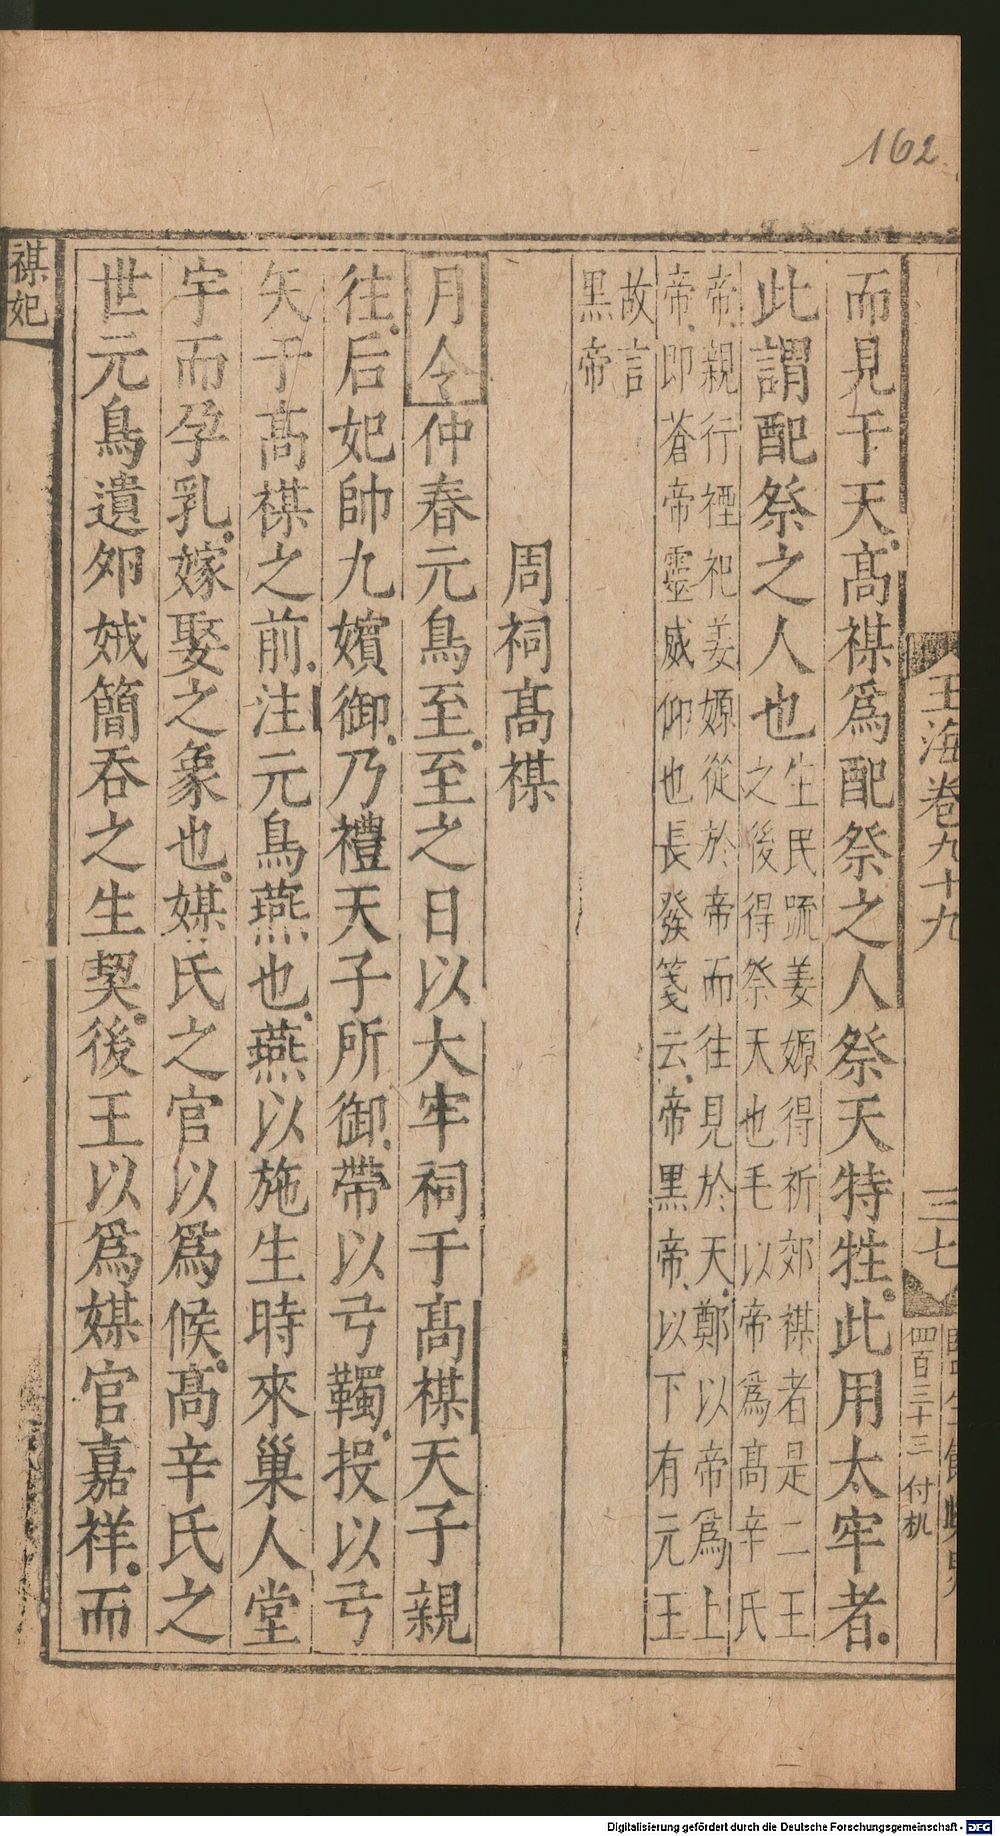 162
玉海卷九十九
三七
四百三十三 付机
而見于天高禖爲配祭之人祭天特牲此用太牢者
此謂配祭之人也生民疏姜嫄得祈郊禖者是二王
之後得祭天也毛以帝爲高辛氏
帝親行禋祀姜嫄從於帝而往見於天鄭以帝爲上
帝即蒼帝靈威仰也長發箋云帝黑帝以下有元王
故言
黑帝
周祠高禖
月令仲春元鳥至至之日以大牢祠于高禖天子親
往后妃帥九嬪御乃禮天子所御帶以弓韣授以弓
矢于高禖之前注元鳥燕也燕以施生時來巢人堂
宇而孚乳嫁娶之象也媒氏之官以爲候高辛氏之
世元鳥遺卵娀簡吞之生契後王以爲媒官嘉祥而
禖妃
Digitalisierung gefördert durch die Deutsche Forschungsgemeinschaft - DFG